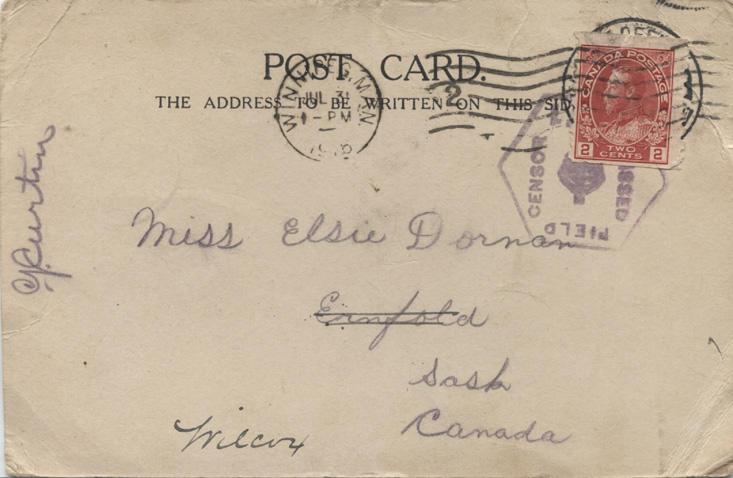 POST CARD.
THE ADDRESS TO BE WRITTEN ON THIS SID
WINNIPEG, MAN.
JUL 31
1-PM
1918
2
CANADA POSTAGE
2 TWO CENTS 2
CENSOR
FIELD
Miss Elsie Dornan
Ernfold
Sask
Canada
Wilcox